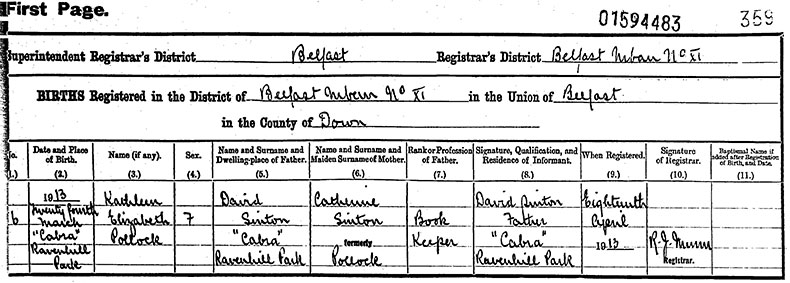 First Page.
01594483 359
Superintendent Registrar's District Belfast Registrar's District Belfast Urban No XI
BIRTHS Registered in the District of Belfast Urban No XI in the Union of Belfast
in the County of Down
No. Date and Place of Birth. Name (if any). Sex. Name and Surname and Dwelling-place of Father. Name and Surname and Maiden Surname of Mother. Rank or Profession of Father. Signature, Qualification, and Residence of Informant. When Registered. Signature of Registrar. Baptismal Name if added after Registration of Birth, and Date.
(1.) (2.) (3.) (4.) (5.) (6.) (7.) (8.) (9.) (10.) (11.)
1913 Kathleen David Catherine David Sinton Eighteenth
6 Twenty fourth March Elizabeth F Sinton Sinton Book Father April
"Cabra" Pollock "Cabra" formerly Keeper "Cabra" 1913 R.J.
Ravenhill Park Ravenhill Park Pollock Ravenhill Park Registrar.